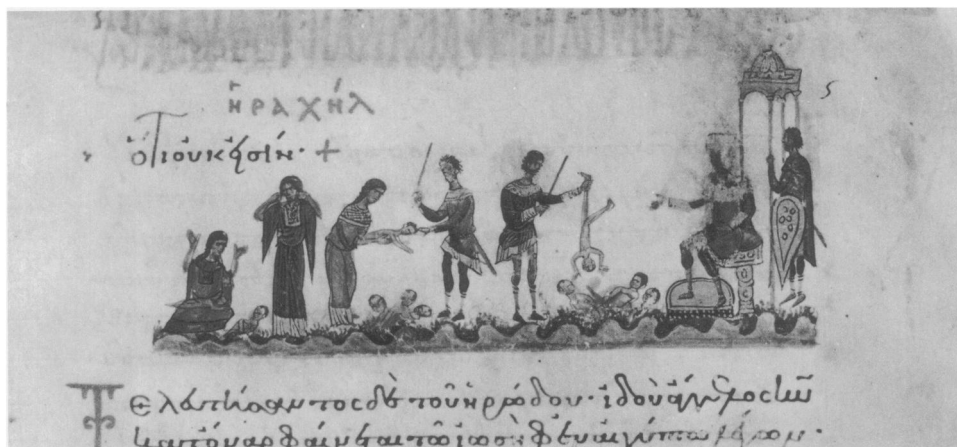 ἡ ΡΑΧΗΛ
ὅτι οὐκ εἰσίν· +
Τελευτήσαντος δὲ τοῦ ἡρώδου· ἰδοὺ ἄγγελος κυ
κατόναρ φαίνεται τῶ ἰωσὴφ ἐν αἰγύπτω λέγων·